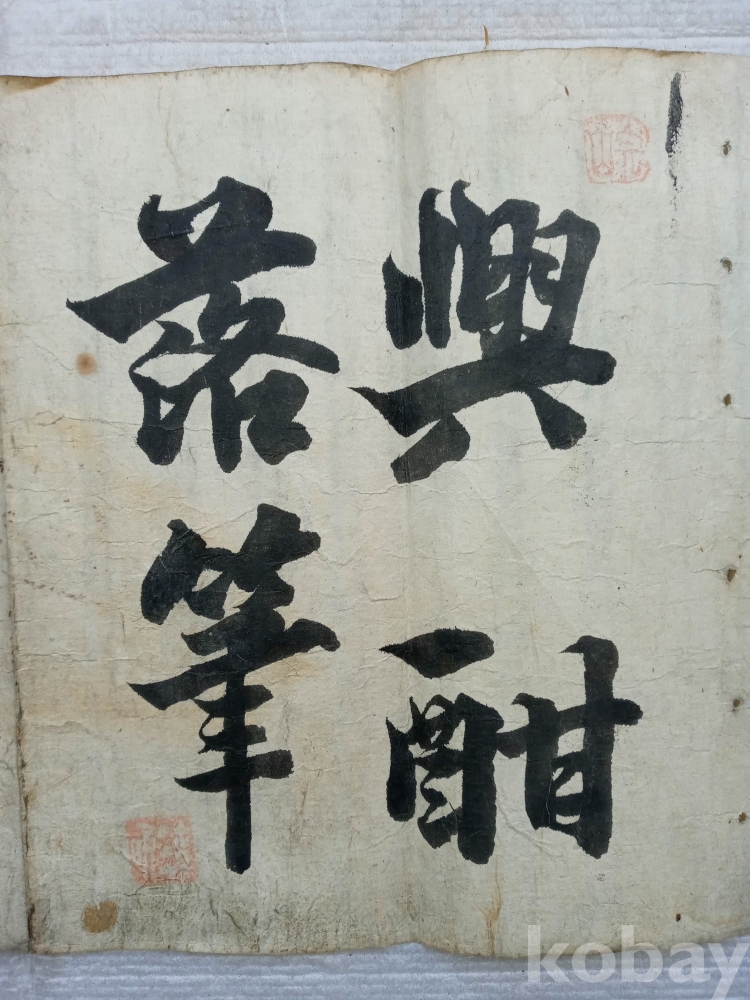 興酣
落筆
kobay